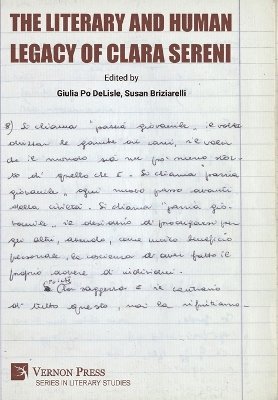 THE LITERARY AND HUMAN
LEGACY OF CLARA SERENI
Edited by
Giulia Po DeLisle, Susan Briziarelli
8) Si chiama "pazzia giovanile", il voler
drizzar le gambe ai cani, il voler
che il mondo sia un po' meno stor-
to di quello che è. Si chiama "pazzia
giovanile", ogni nuovo passo avanti
della civiltà. Si chiama "pazzia gio-
vanile", il desiderio di prodigarsi per
gli altri, avendo, come unico beneficio
personale, la coscienza di aver fatto il
proprio dovere di individui.
poiché
la saggezza è il contrario
di tutto questo, noi la rifiutiamo.
VERNON PRESS
SERIES IN LITERARY STUDIES